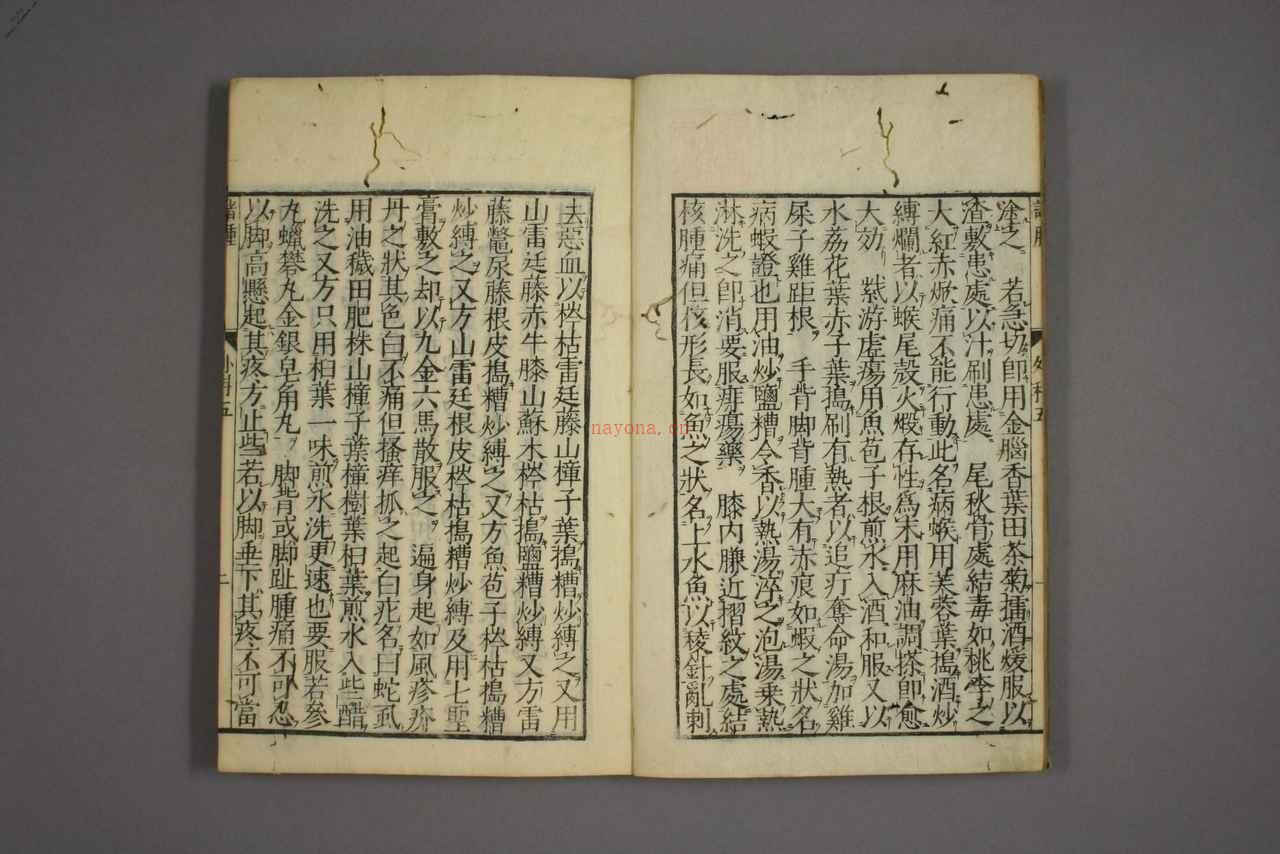 塗之 若急切卽用金腦香葉田茶菊擂酒煖服以
渣敷患處以汁刷患處 尾秋骨處結毒如桃李之
大紅赤焮痛不能行動此名病蜞用芙蓉葉搗酒炒
縛爛者以蜞尾殼火煅存性爲末用麻油調搽卽愈
大効 紫游虛瘍用魚苞子根煎水入酒和服又以
水荔花葉赤子葉搗刷有熱者以追疔奪命湯加雞
屎子雞距根 手背脚背腫大有赤痕如蝦之狀名
病蝦證也用油炒鹽糟令香以熱湯淬之泡湯乗熱
淋洗之卽消要服痱瘍藥 膝內臁近摺紋之處結
核腫痛但核形長如魚之狀名上水魚以稜針亂刺
外科五
一
去惡血以桚枯雷廷藤山橦子葉搗糟炒縛之又用
山雷廷藤赤牛膝山蘇木桚枯搗鹽糟炒縛又方雷
藤鼈尿藤根皮搗糟炒縛之又方魚苞子桚枯搗糟
炒縛之又方山雷廷根皮桚枯搗糟炒縛及用七聖
膏敷之却以九金六馬散服之 遍身起如風疹疥
丹之狀其色白不痛但搔痒抓之起白疕名曰蛇虱
用油穢田肥株山橦子葉橦樹葉桕葉煎水入些醋
洗之又方只用桕葉一味煎水洗更速也要服苦參
丸蠟礬丸金銀皂角丸 脚背或脚趾腫痛不可忍
以脚高懸起其疼方止些若以脚垂下其疼不可當
諸腫
外科五
二
nayona.cn